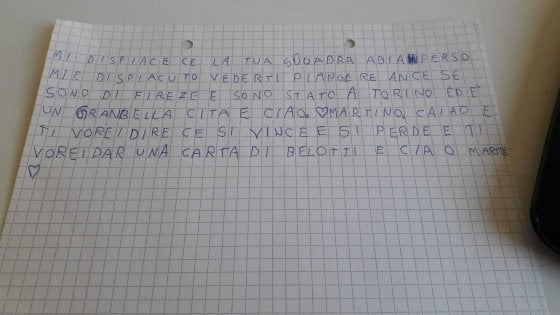 MI DISPIACE CE LA TUA SQUADRA ABIA PERSO
MI E DISPIACUTO VEDERTI PIANGERE ANCE SE
SONO DI FIREZE E SONO STATO A TORINO ED E
UN GRAN BELLA CITA E CIAO. ♡MARTINO. CAIAO E
TI VOREI DIRE CE SI VINCE E SI PERDE E TI
VOREI DAR UNA CARTA DI BELOTTI E CIAO
♡